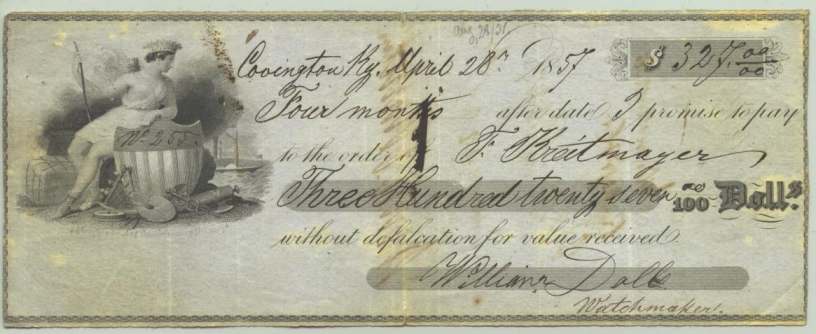 Aug 28/31
Covington Ky. April 28th 1857 $ 327.00/00
Four months after date I promise to pay
No. 255.
to the order of F. Kreitmayer
Three Hundred twenty seven 00/100 Doll.s
without defalcation for value received.
William Dolle
Watchmaker.